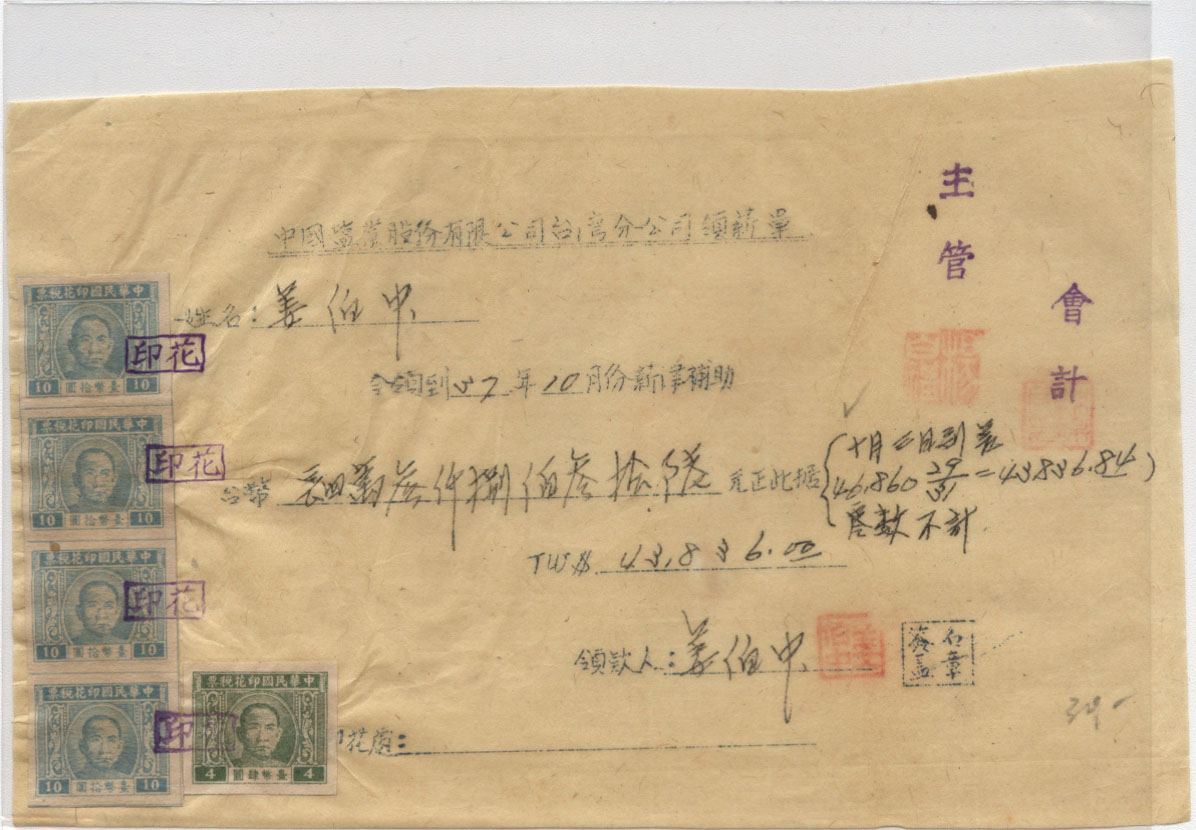 中國鹽業股份有限公司台灣分公司領薪單
姓名：姜伯中
今領到37年10月份薪津補助
台幣 肆萬叁仟捌佰叁拾陸元正此據
十月三日到差
46,860 29/31 = 43836.84
尾数不計
TW$ 43,836.00
領款人：姜伯中
簽名蓋章
印花處：
主管
會計
中華民國印花税票
10 臺幣拾圓 10
印花
中華民國印花税票
10 臺幣拾圓 10
印花
中華民國印花税票
10 臺幣拾圓 10
印花
中華民國印花税票
10 臺幣拾圓 10
印花
中華民國印花税票
4 臺幣肆圓 4